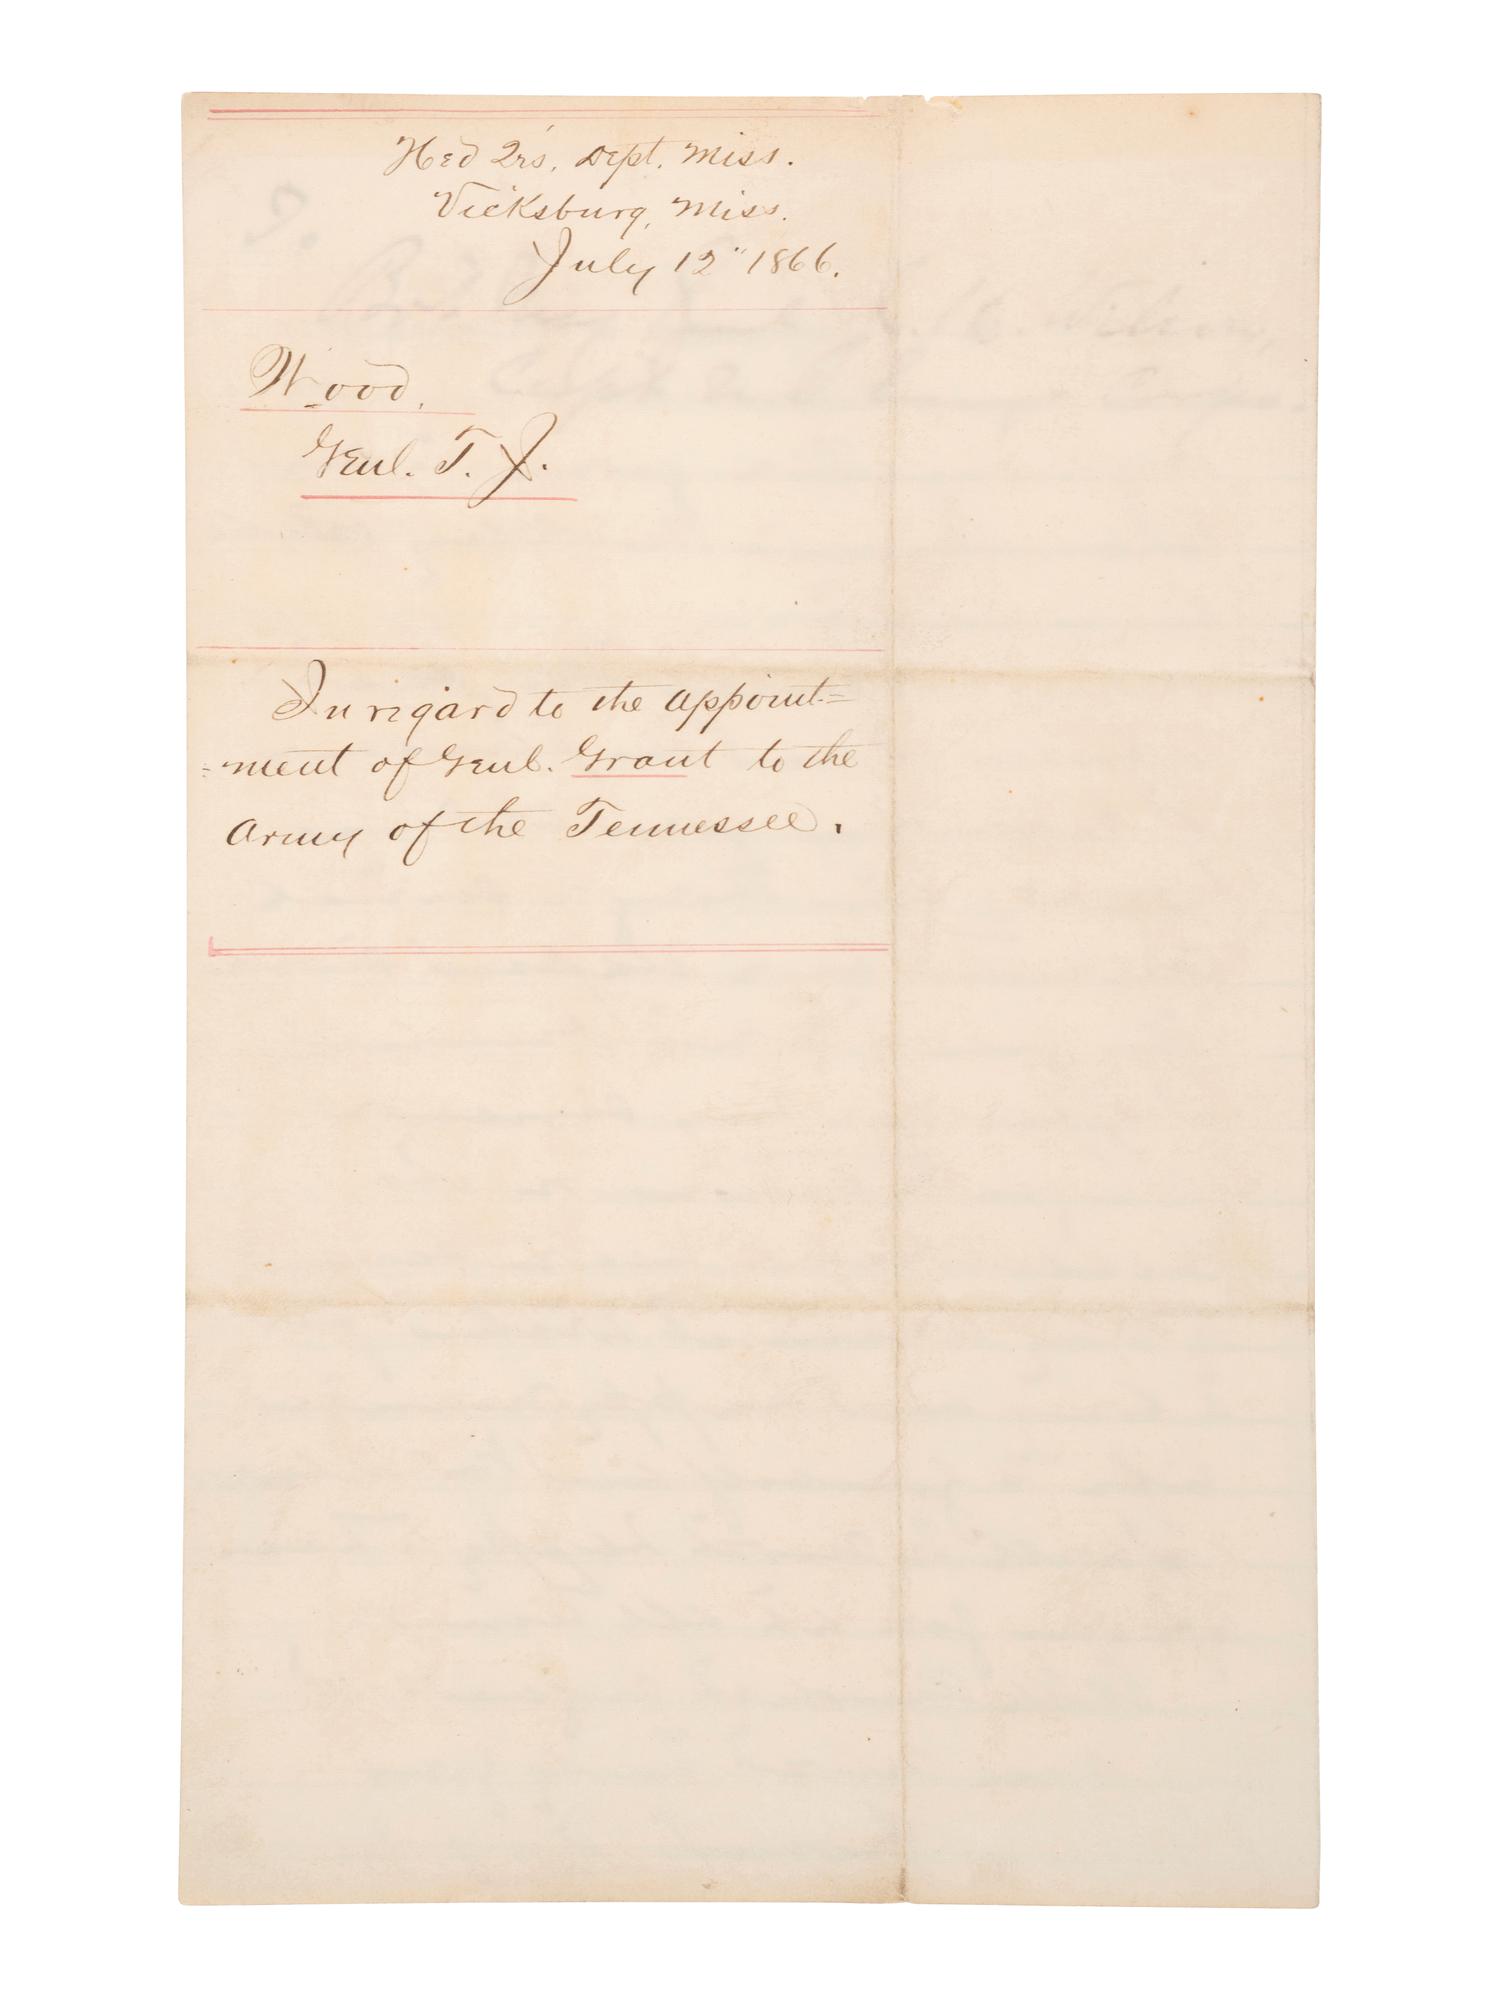 Hed Qrs. Dept. Miss.
Vicksburg, Miss.
July 12" 1866.
Wood,
Genl. T. J.
In regard to the appoint=
=ment of Genl. Grant to the
Army of the Tennessee.